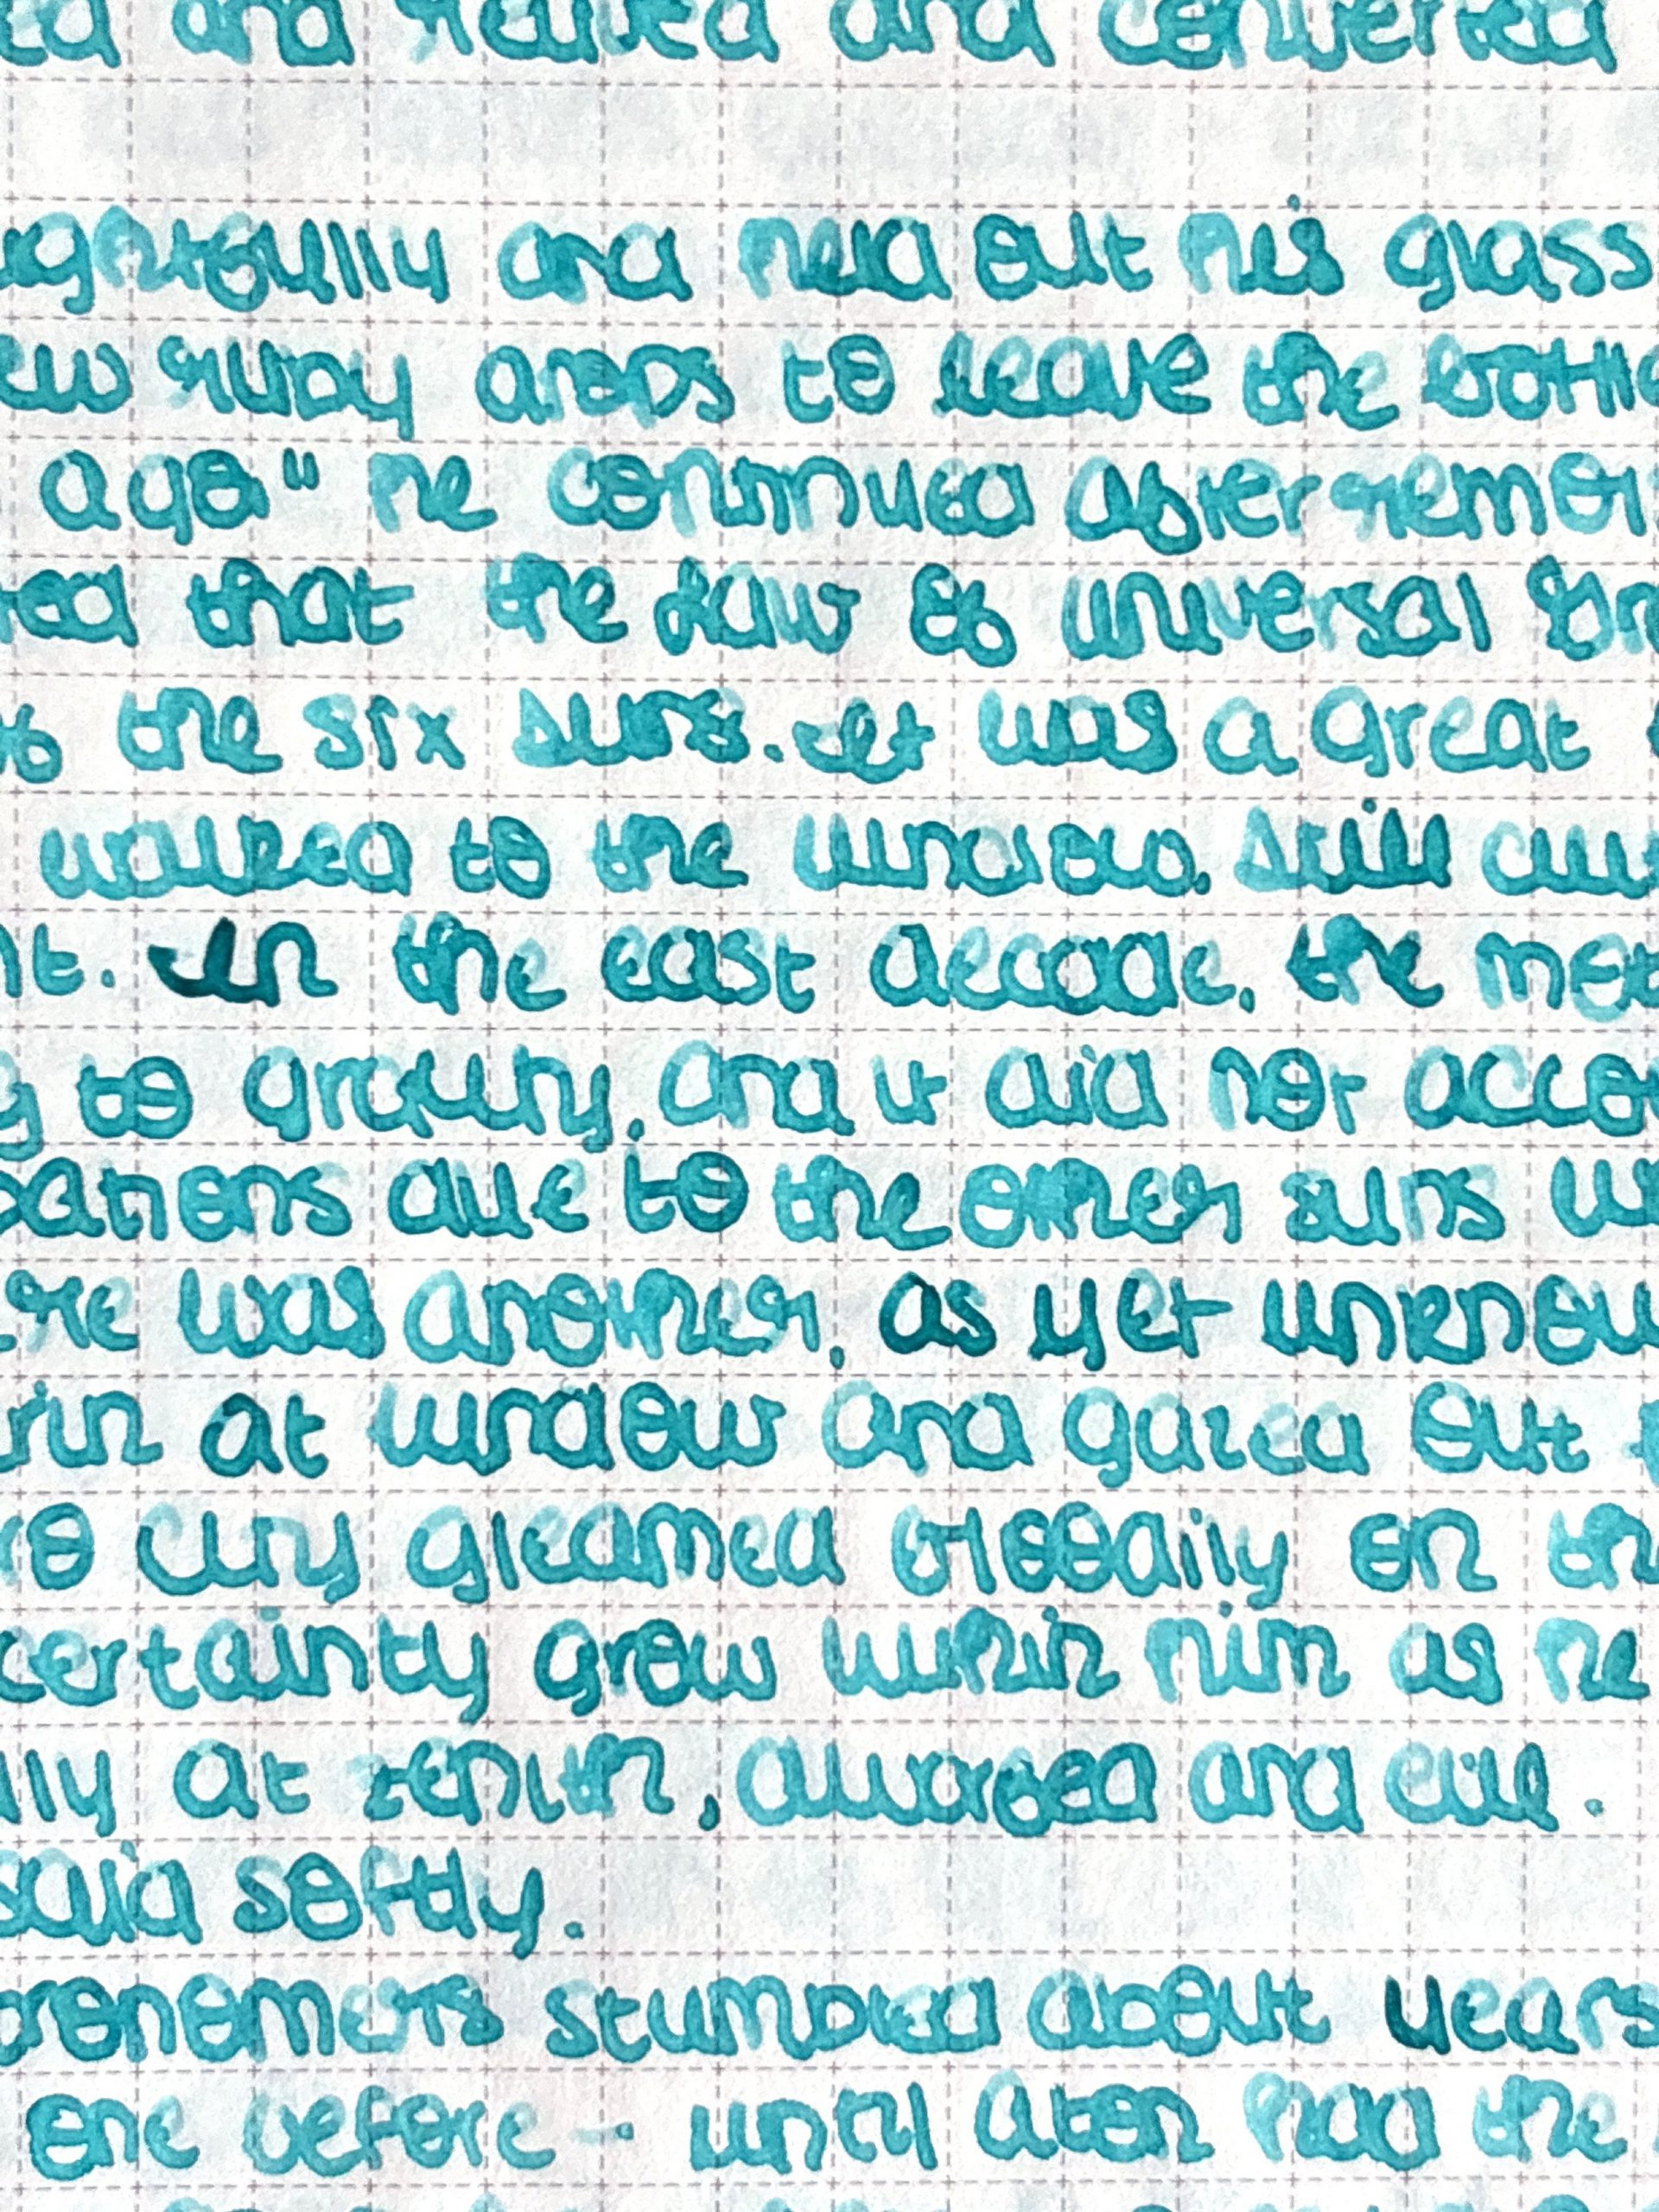 and and
ughtfully and held out his glass
ew ruby drops to leave the bottle
ago" he continued after remov
ted that the Law of universal Gr
of the six suns. It was a great
walked to the window. Still cur
nt. In the last decade, the mot
g to gravity, and it did not accou
bations due to the other suns w
ere was another, as yet unknow
rin at window and gazed out
ro city gleamed bloodily on th
certainty grow within him as he
lly at zenith, dwarfed and evil.
said softly.
tronomers stumbled about years
one before - until Aton had the